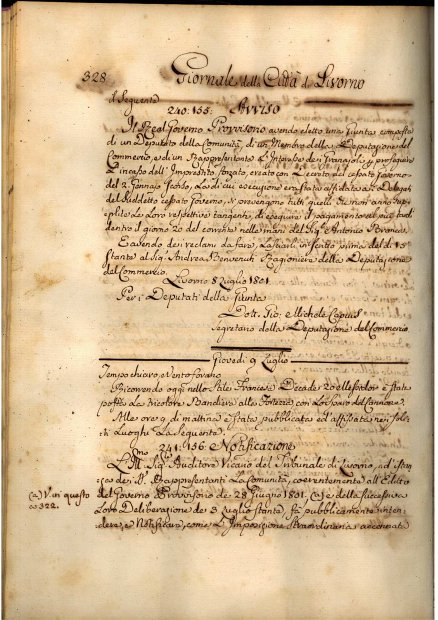 328
Giornale della Città di Livorno
il Seguente
240: 155: Avviso
Il Real Governo Provvisorio avendo eletto una Giunta composta
di un Deputato della Comunità, di un Membro della Deputazione del
Commercio, e di un Rappresentante l'Interesse dei per proseguire
L'incasso dell'Imprestito forzato, creato con Decreto del cessato Governo
del 2. Gennaio scorso, la di cui esecuzione era stata affidata ai Delegati
del suddetto cessato Governo, si prevengono tutti quelli che non anno sup-
plito le loro respettive tangenti, di eseguire il pagamento al più tardi
dentro il giorno 20 del corrente nelle mani del Sig. Antonio
E avendo dei reclami da fare, lasciarli in scritto prima del dì 15
Stante al Sig. Andrea Benvenuti Ragioniere della Deputazione
del Commercio.
Livorno 8 Luglio 1801
Per i Deputati della Giunta
Dott. Gio: Michele
Segretario della Deputazione del Commercio
Giovedì 9 Luglio
Tempo chiaro, e Vento
Ricorrendo oggi nello Stile Francese Decade 20 Messidor è stata
posta la tricolore Bandiera alla Fortezza con lo sparo del Cannone.
Alle ore 9 di mattina è stata pubblicata ed affissata nei soli-
ti Luoghi La Seguente
241: 156: Notificazione
L' Sig. Auditore Vicario del Tribunale di Livorno, ad istan-
za dei Rappresentanti La Comunità, coerentemente all'Editto
del Governo Provvisorio de 28 Giugno 1801. (a) e della successiva
Loro Deliberazione de 3 Luglio stante, fa pubblicamente inten-
dere, e Notificare, come L'Imposizione Straordinaria
(a) V. in questo
a 322.